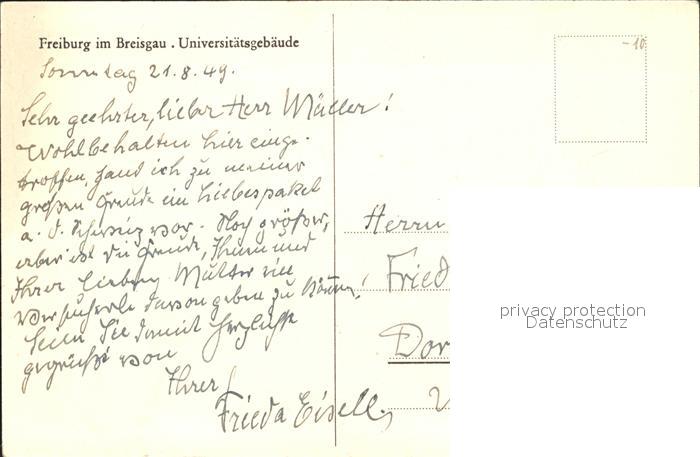 Freiburg im Breisgau . Universitätsgebäude
Sonntag 21.8.49.
Sehr geehrter, lieber Herr Müller!
Wohlbehalten hier einge-
troffen, fand ich zu meiner
großen Freude ein Liebespaket
a. d. Schweiz vor. Noch größer,
aber ist die Freude, Ihnen und
Ihrer lieben Mutter ein
Versucherle davon geben zu können.
Seien Sie damit herzlichst
gegrüßt von
Ihrer
Frieda Eisell.
-10
Herrn
Fried
Dor
privacy protection
Datenschutz